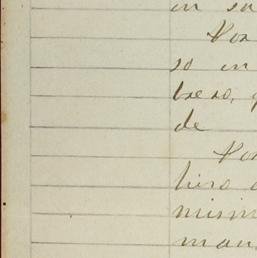 en su
Por
so en
brero, 
de
Por
hizo
mism
man